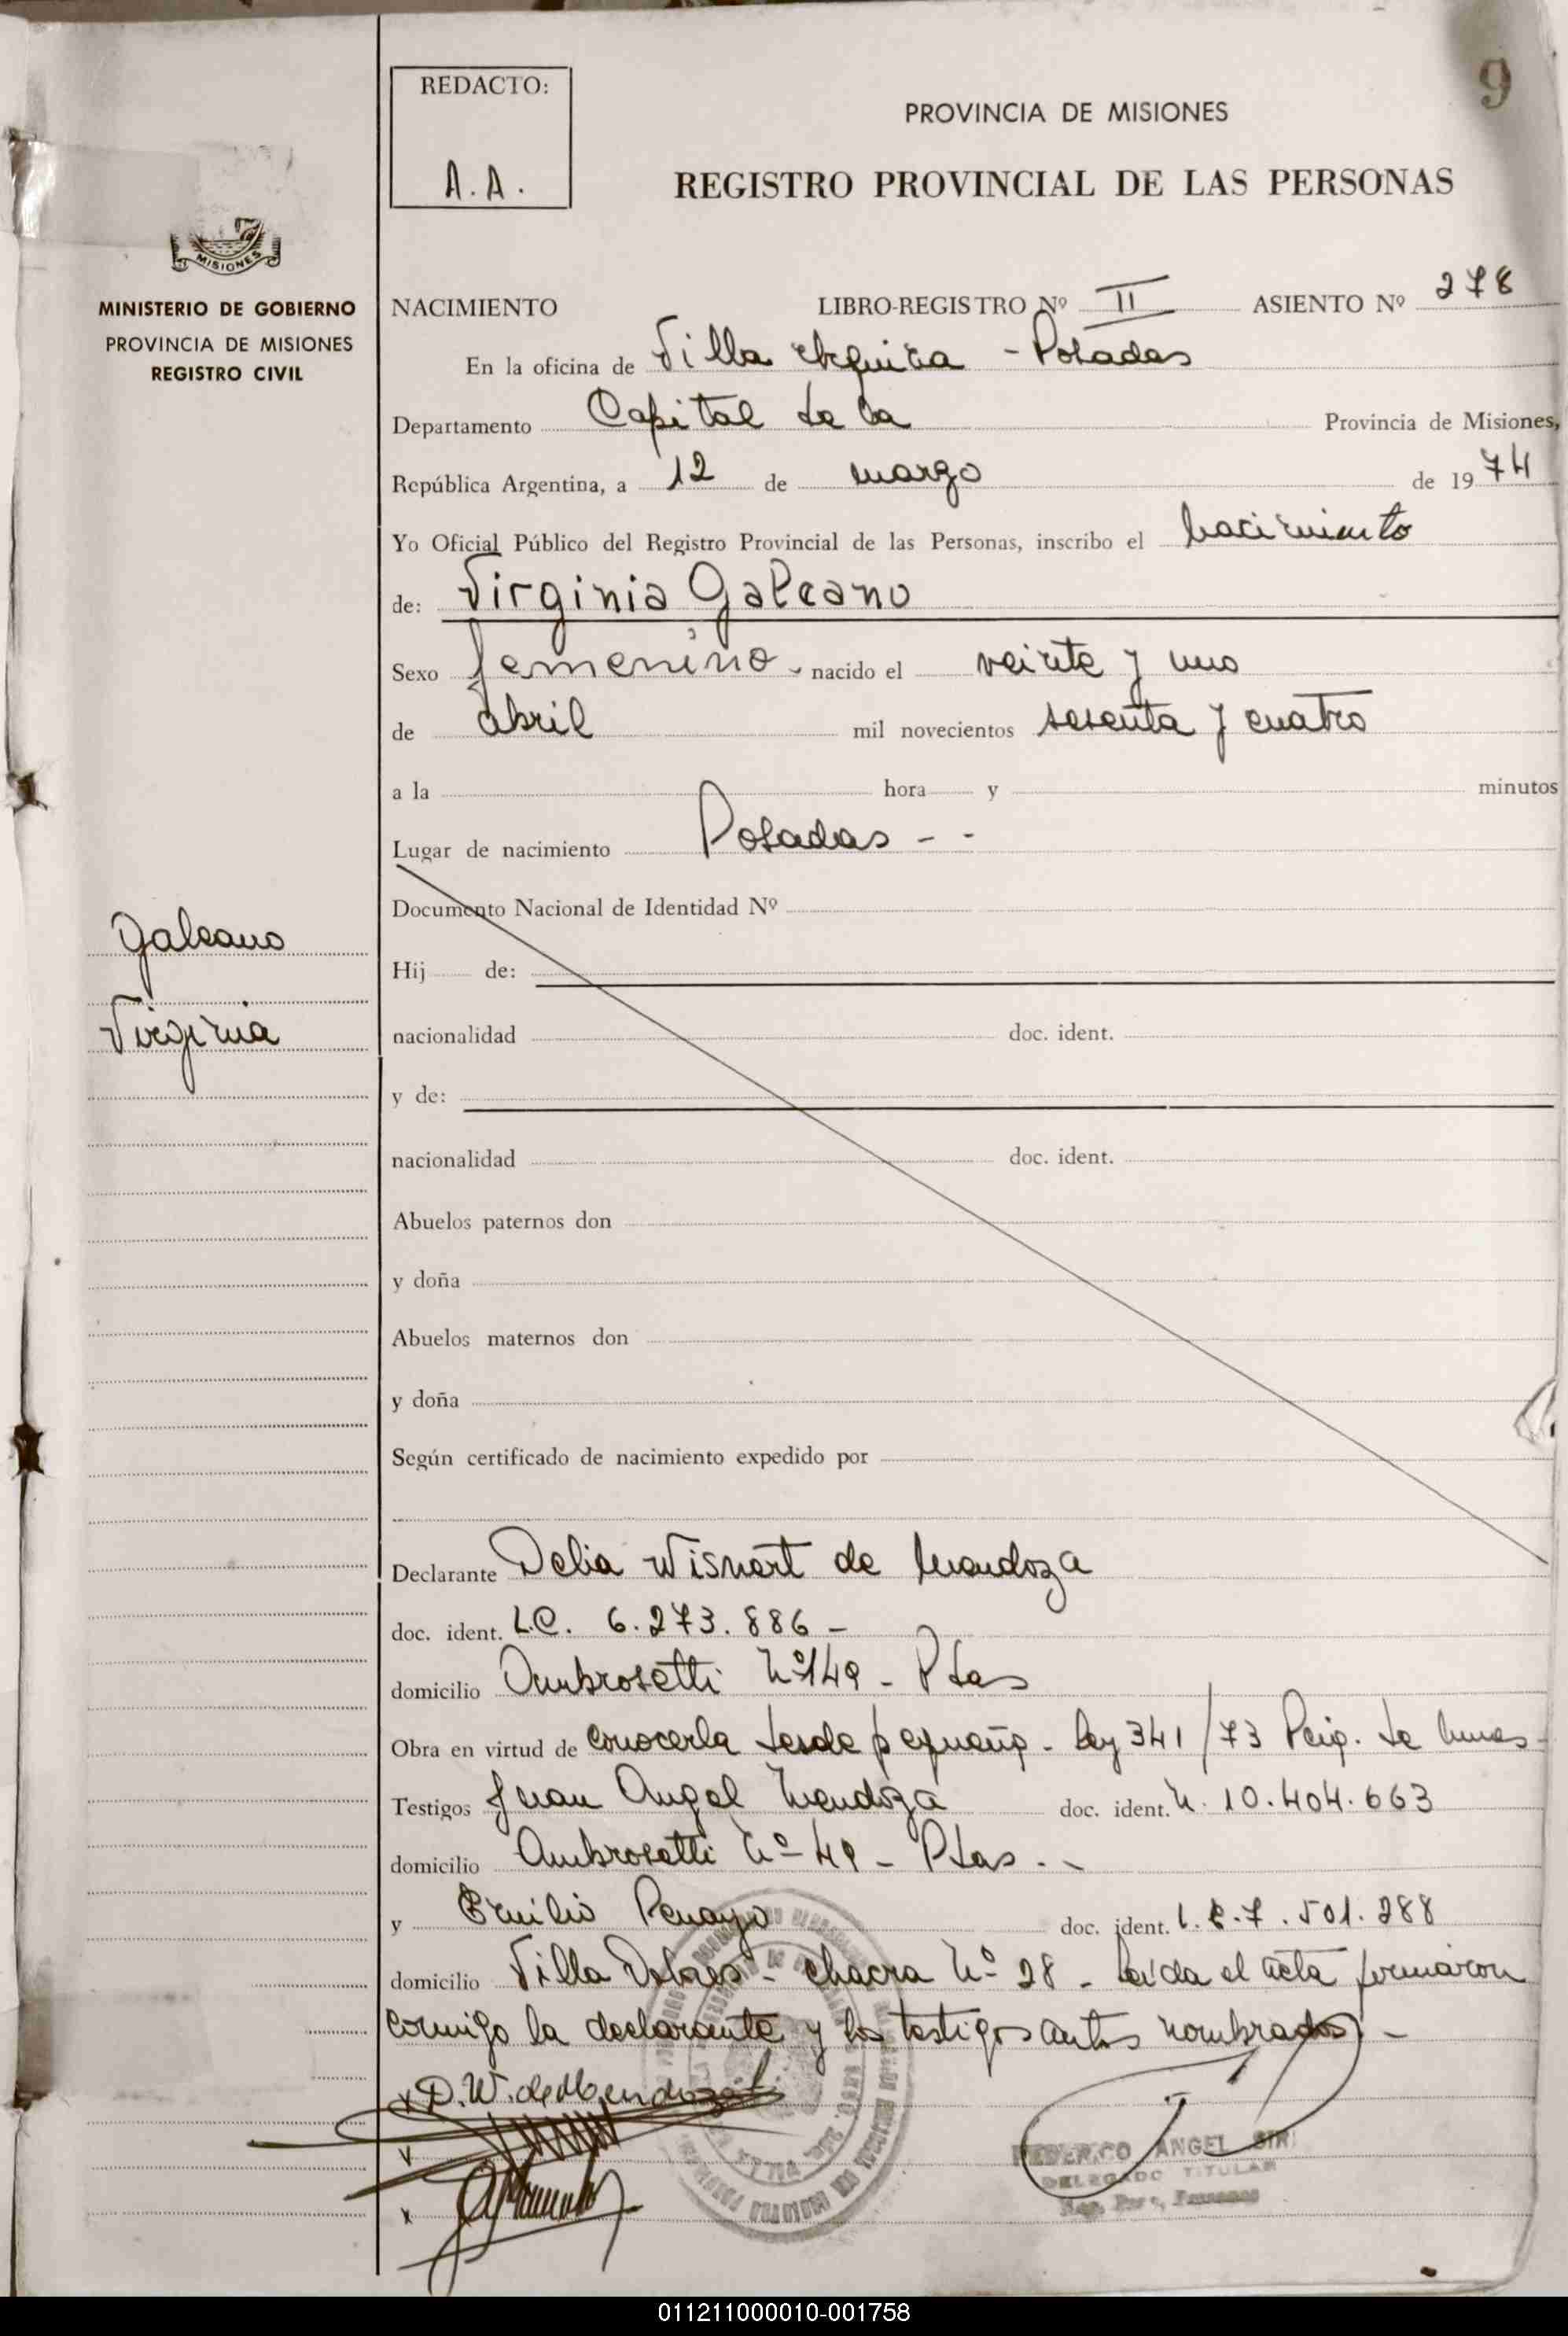 9
REDACTO:
A.A.
PROVINCIA DE MISIONES
REGISTRO PROVINCIAL DE LAS PERSONAS
MISIONES
MINISTERIO DE GOBIERNO
PROVINCIA DE MISIONES
REGISTRO CIVIL
NACIMIENTO LIBRO-REGISTRO Nº II ASIENTO Nº 278
En la oficina de Villa Urquiza - Posadas
Departamento Capital de la Provincia de Misiones,
República Argentina, a 12 de marzo de 1974
Yo Oficial Público del Registro Provincial de las Personas, inscribo el nacimiento
de: Virginia Galeano
Sexo femenino - nacido el veinte y uno
de abril mil novecientos sesenta y cuatro
a la hora y minutos
Lugar de nacimiento Posadas - -
Documento Nacional de Identidad Nº
Galeano
Virginia
Hij de:
nacionalidad doc. ident.
y de:
nacionalidad doc. ident.
Abuelos paternos don
y doña
Abuelos maternos don
y doña
Según certificado de nacimiento expedido por
Declarante Delia Wisnert de Mendoza
doc. ident. L.C. 6.273.886 -
domicilio Ambrosetti Nº 149 - Pdas
Obra en virtud de conocerla desde pequeña - Ley 341/73 de
Testigos Juan Angel Mendoza doc. ident. N. 10.404.663
domicilio Ambrosetti Nº 49 - Pdas. -
y Emilio Penayo doc. ident. L.E. 7.501.288
domicilio Villa Dolores - chacra Nº 28 - Leida el acta firmaron
conmigo la declarante y los testigos antes nombrados -
x D.W. de Mendoza
FEDERICO ANGEL SIRI
DELEGADO TITULAR
011211000010-001758